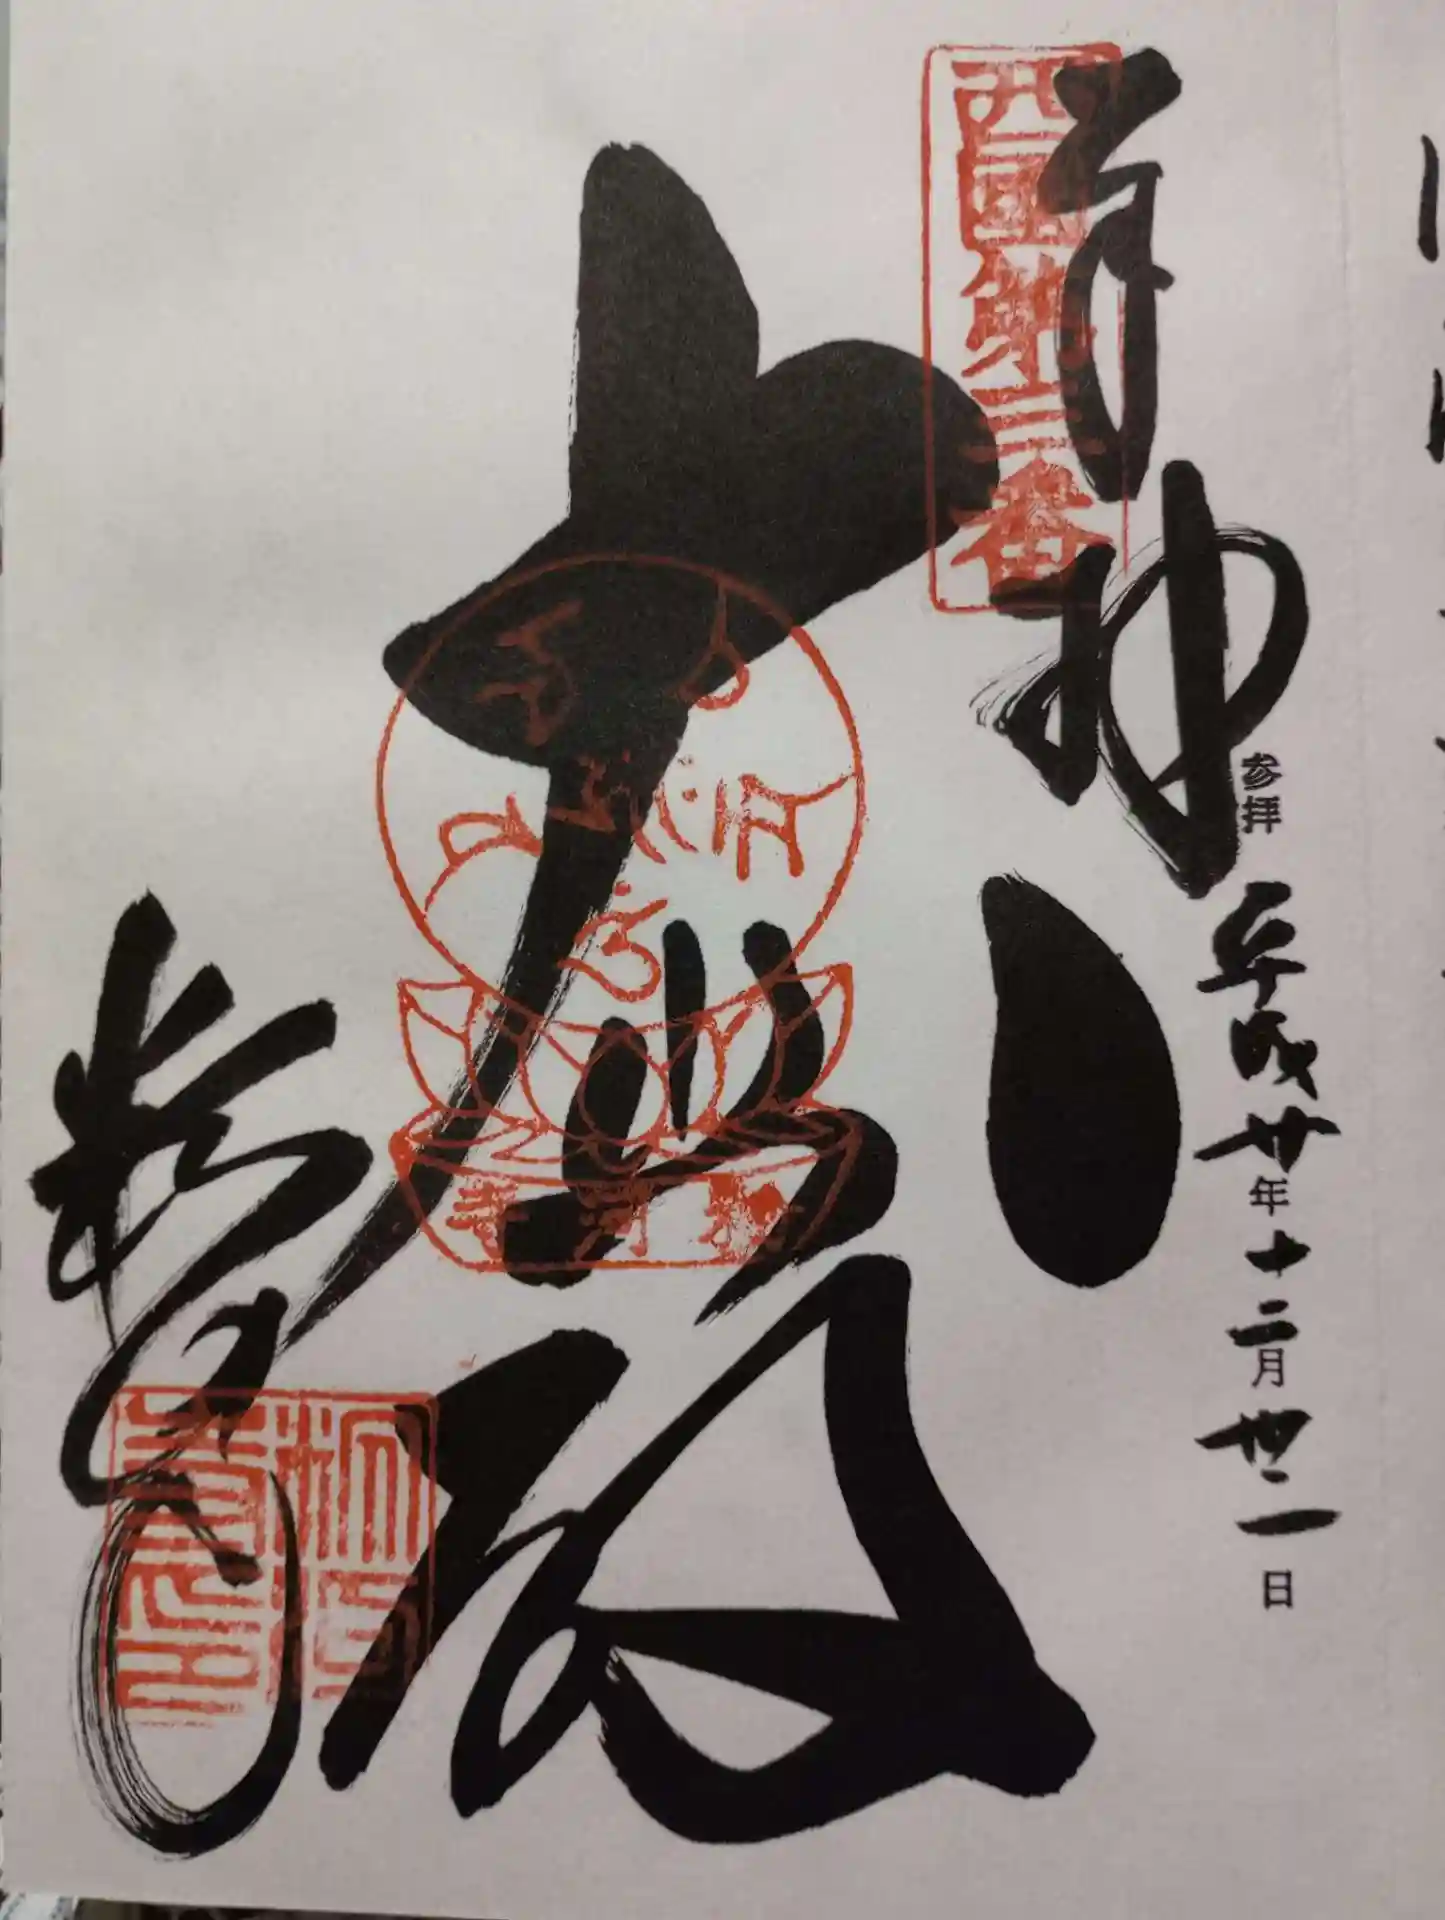 奉拝
西國第三番
参拝 平成廿年十二月丗一日
大悲殿
粉河寺
粉河寺
粉河寺印